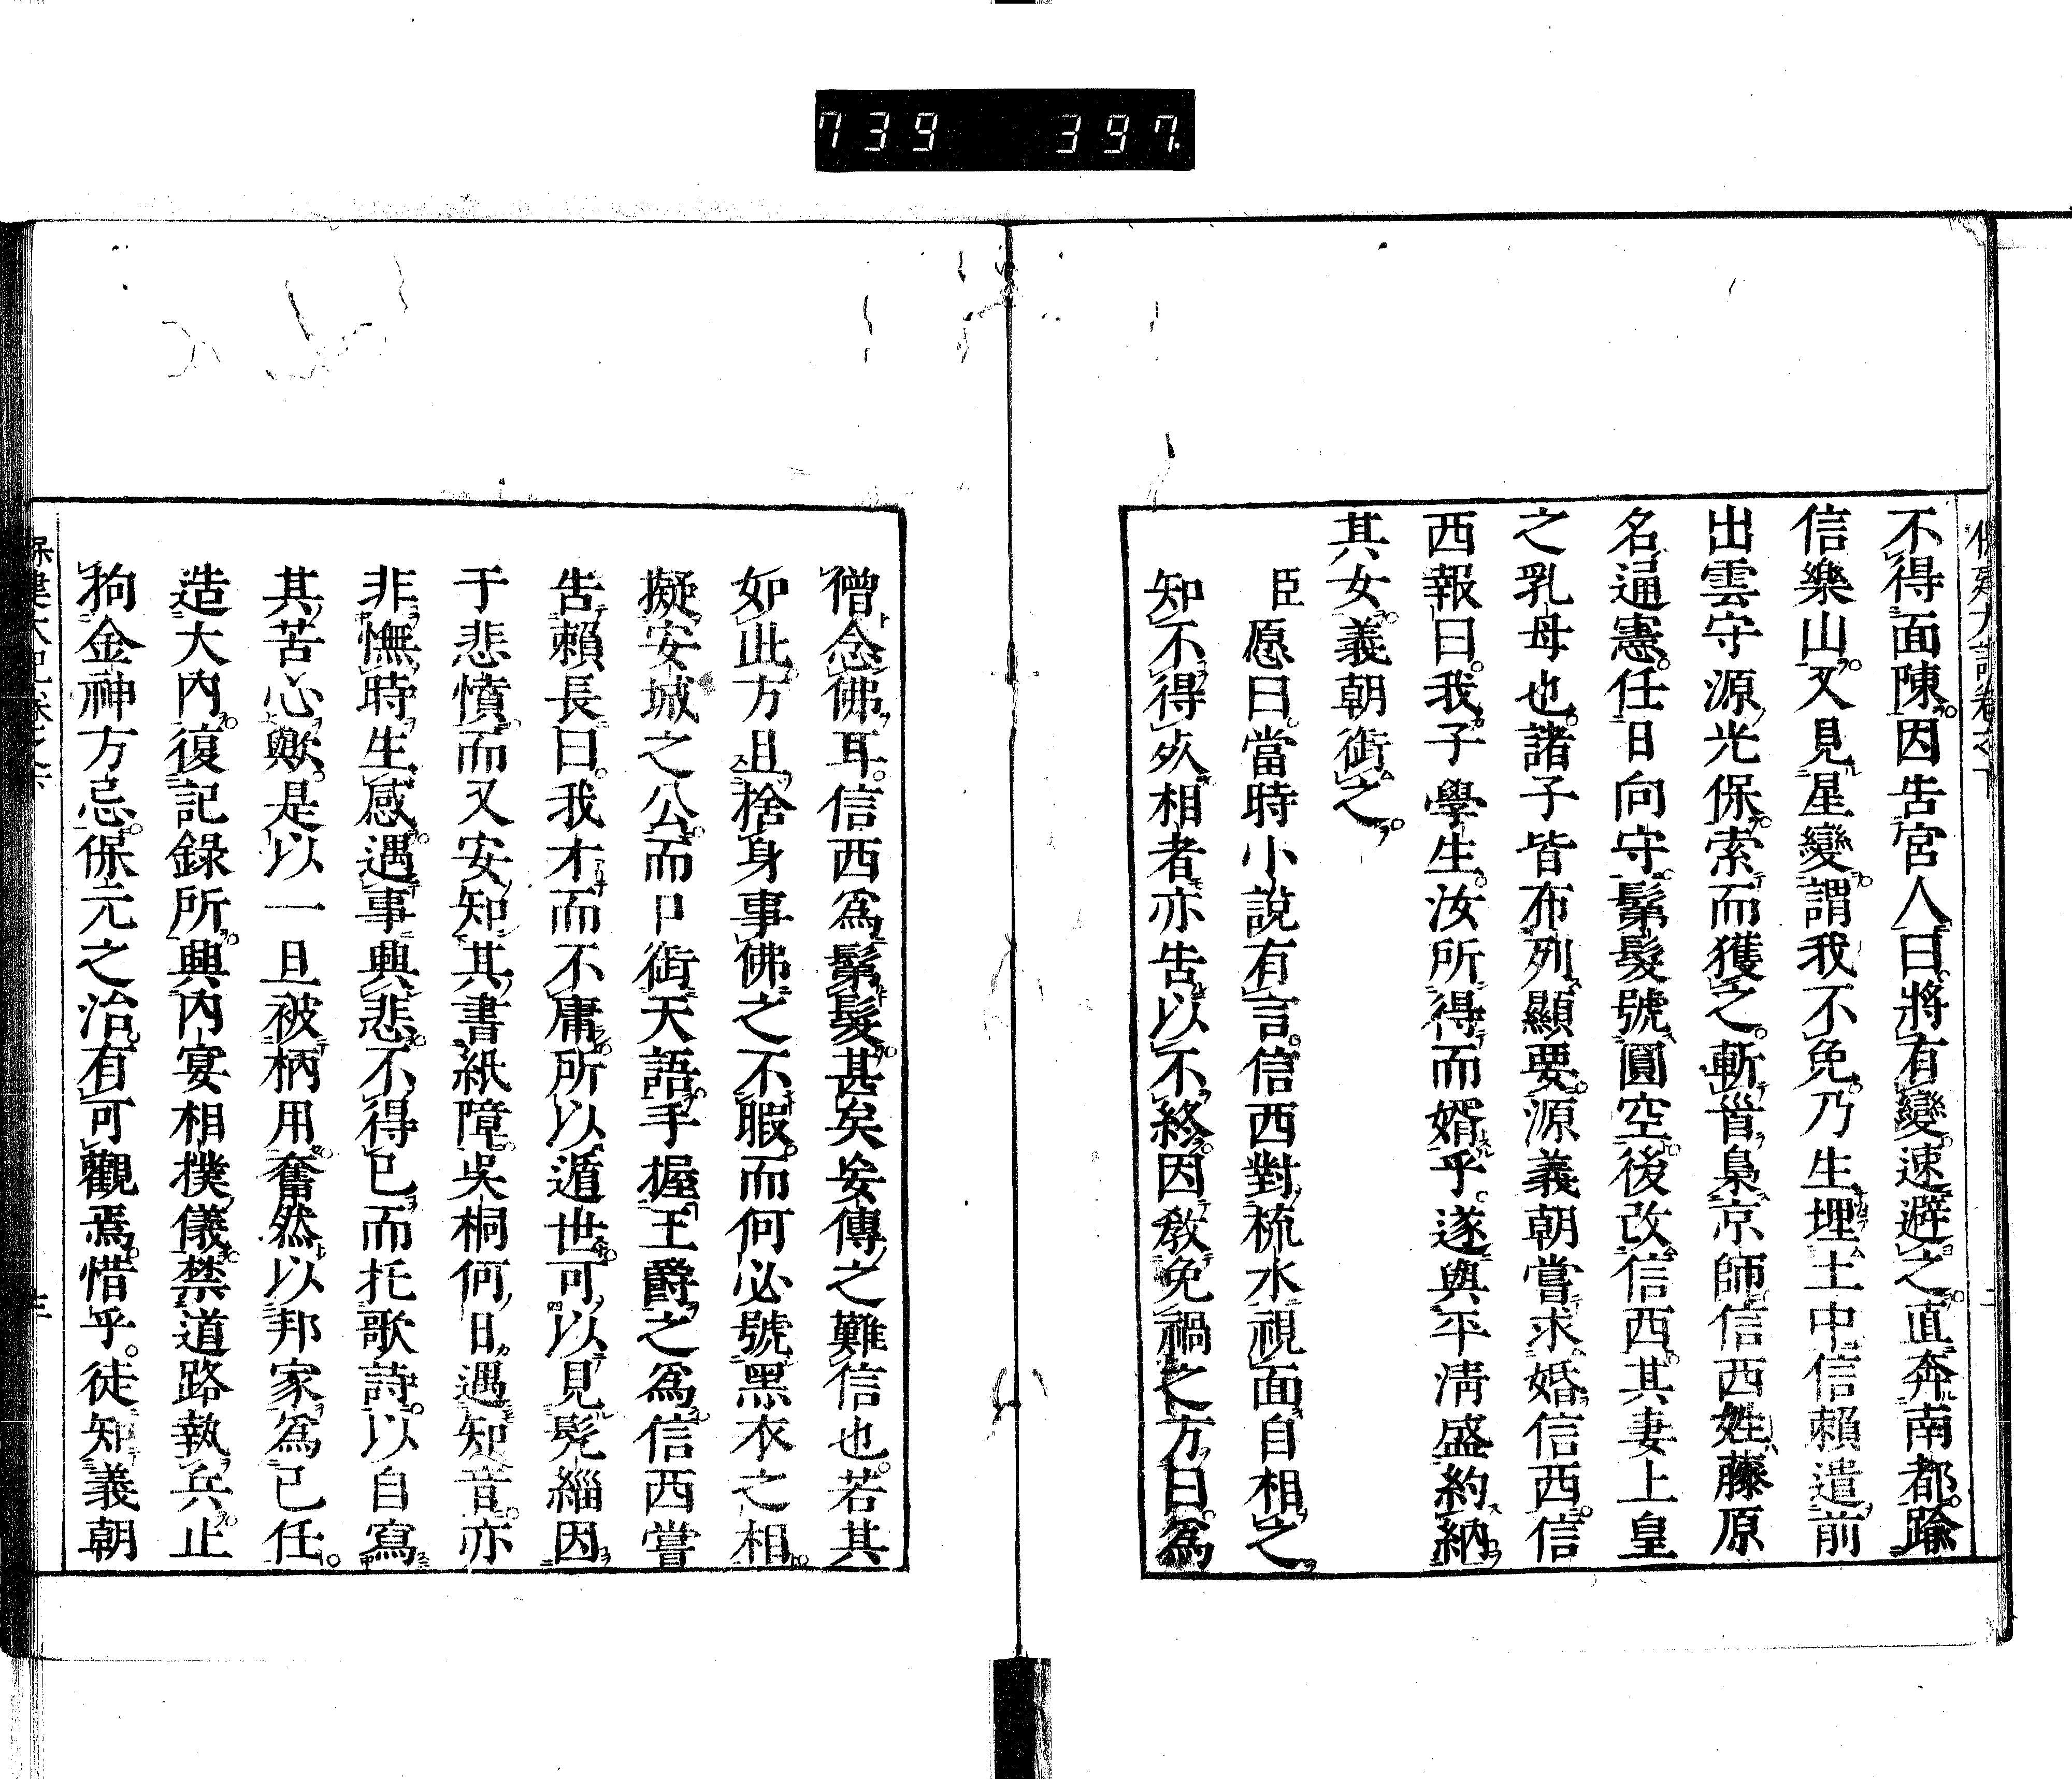 739 397.
不得面陳因告宮人曰將有變速避之直奔南都踰
信樂山又見星變謂我不免乃生埋土中信賴遣前
出雲守源光保索而獲之斬首梟京師信西姓藤原
名通憲任日向守鬀髮號圓空後改信西其妻上皇
之乳母也諸子皆布列顯要源義朝嘗求婚信西信
西報曰我子學生汝所得而婿乎遂與平淸盛約納
其女義朝銜之
臣愿曰當時小說有言信西對梳水視面自相之
知不得死相者亦告以不終因敎免禍之方曰爲
僧念佛耳信西爲鬀髮甚矣妄傳之難信也若其
如此方且捨身事佛之不暇而何必號黑衣之相
擬安城之公而口銜天語手握王爵之爲信西嘗
告賴長曰我才而不庸所以遁世可以見髡緇因
于悲憤而又安知其書紙障吳桐何日遇知音亦
非憮時生感遇事興悲不得已而托歌詩以自寫
其苦心歟是以一旦被柄用奮然以邦家爲已任
造大內復記錄所興內宴相撲儀禁道路執兵止
拘金神方忌保元之治有可觀焉惜乎徒知義朝